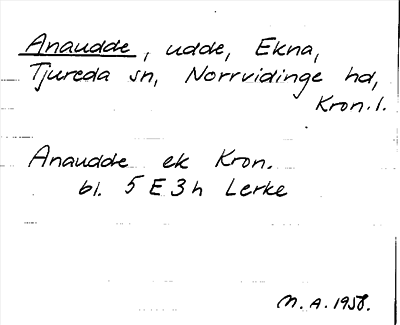 Anaudde, udde, Ekna,
Tjureda sn, Norrvidinge hd,
Kron. l.
Anaudde ek Kron.
bl. 5 E 3 h Lerke
M. A. 1958.